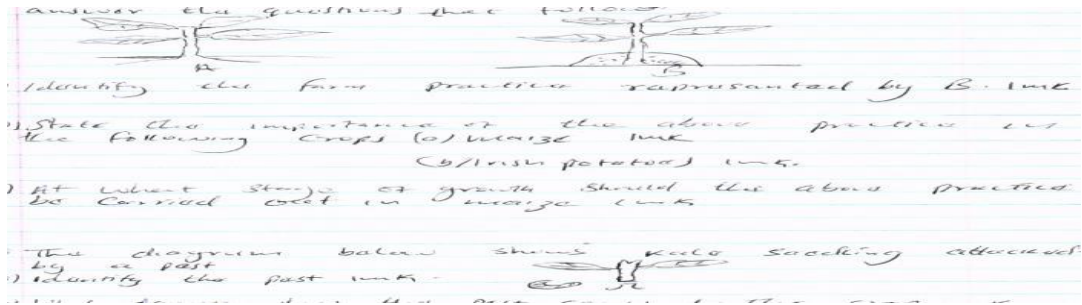 answer the questions that follow
A B
Identify the farm practice represented by B. 1mk
State the importance of the above practice in
the following crops (a) Maize 1mk
(b) Irish potatoes 1mk.
At what stage of growth should the above practice
be carried out in maize 1mk
The diagram below shows kale seedling attacked
by a pest
Identify the pest 1mk.